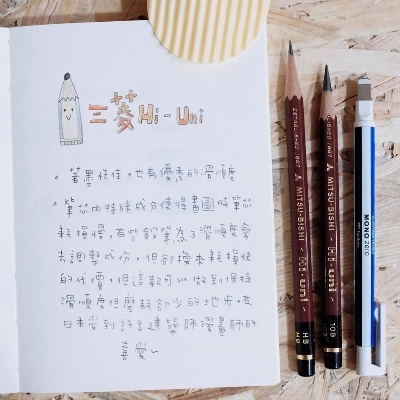 三菱Hi-Uni
。著墨性佳。也有優秀的滑順度
。筆芯內特殊成分使得畫圖時筆芯
耗損慢,有些鉛筆為了滑順度會
去調整成份,但卻換來耗損快
的代價,但這款可以做到保持
滑順度但磨耗卻少的地步。在
日本受到許多建築師漫畫師的
喜愛~
ESTABLISHED 1887 MITSU-BISHI Hi-uni HB
MITSU-BISHI Hi-uni 10B
MONO zero